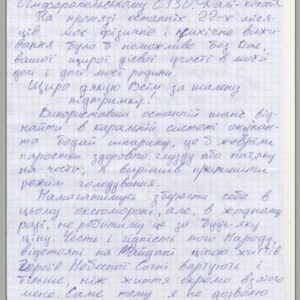 Сімферопольському СІЗО. Далі-копія.
На протязі останніх 22-х міся-
ців, моє фізичне і психічне вижи-
вання було б неможливе без Вас,
вашої щирої дієвої участі в моїй
долі і долі моєї родини.
Щиро дякую Всім за шалену
підтримку!
Використавши останній шанс від-
найти в каральній системі окупан-
та бодай шпарину, де б жевріли
паростки здорового глузду або натяку
на честь, я вирішив припинити
режим голодування.
Намагатимусь зберегти себе в
цьому оксюмороні, але, в жодному
разі, не робитиму це за будь-яку
ціну. Честь і гідність мого Народу,
відстояні на Майдані ціною життів
Героїв Небесної Сотні вартують і
більше, ніж життя окремо взятого
мене. Саме тому я не дозволю